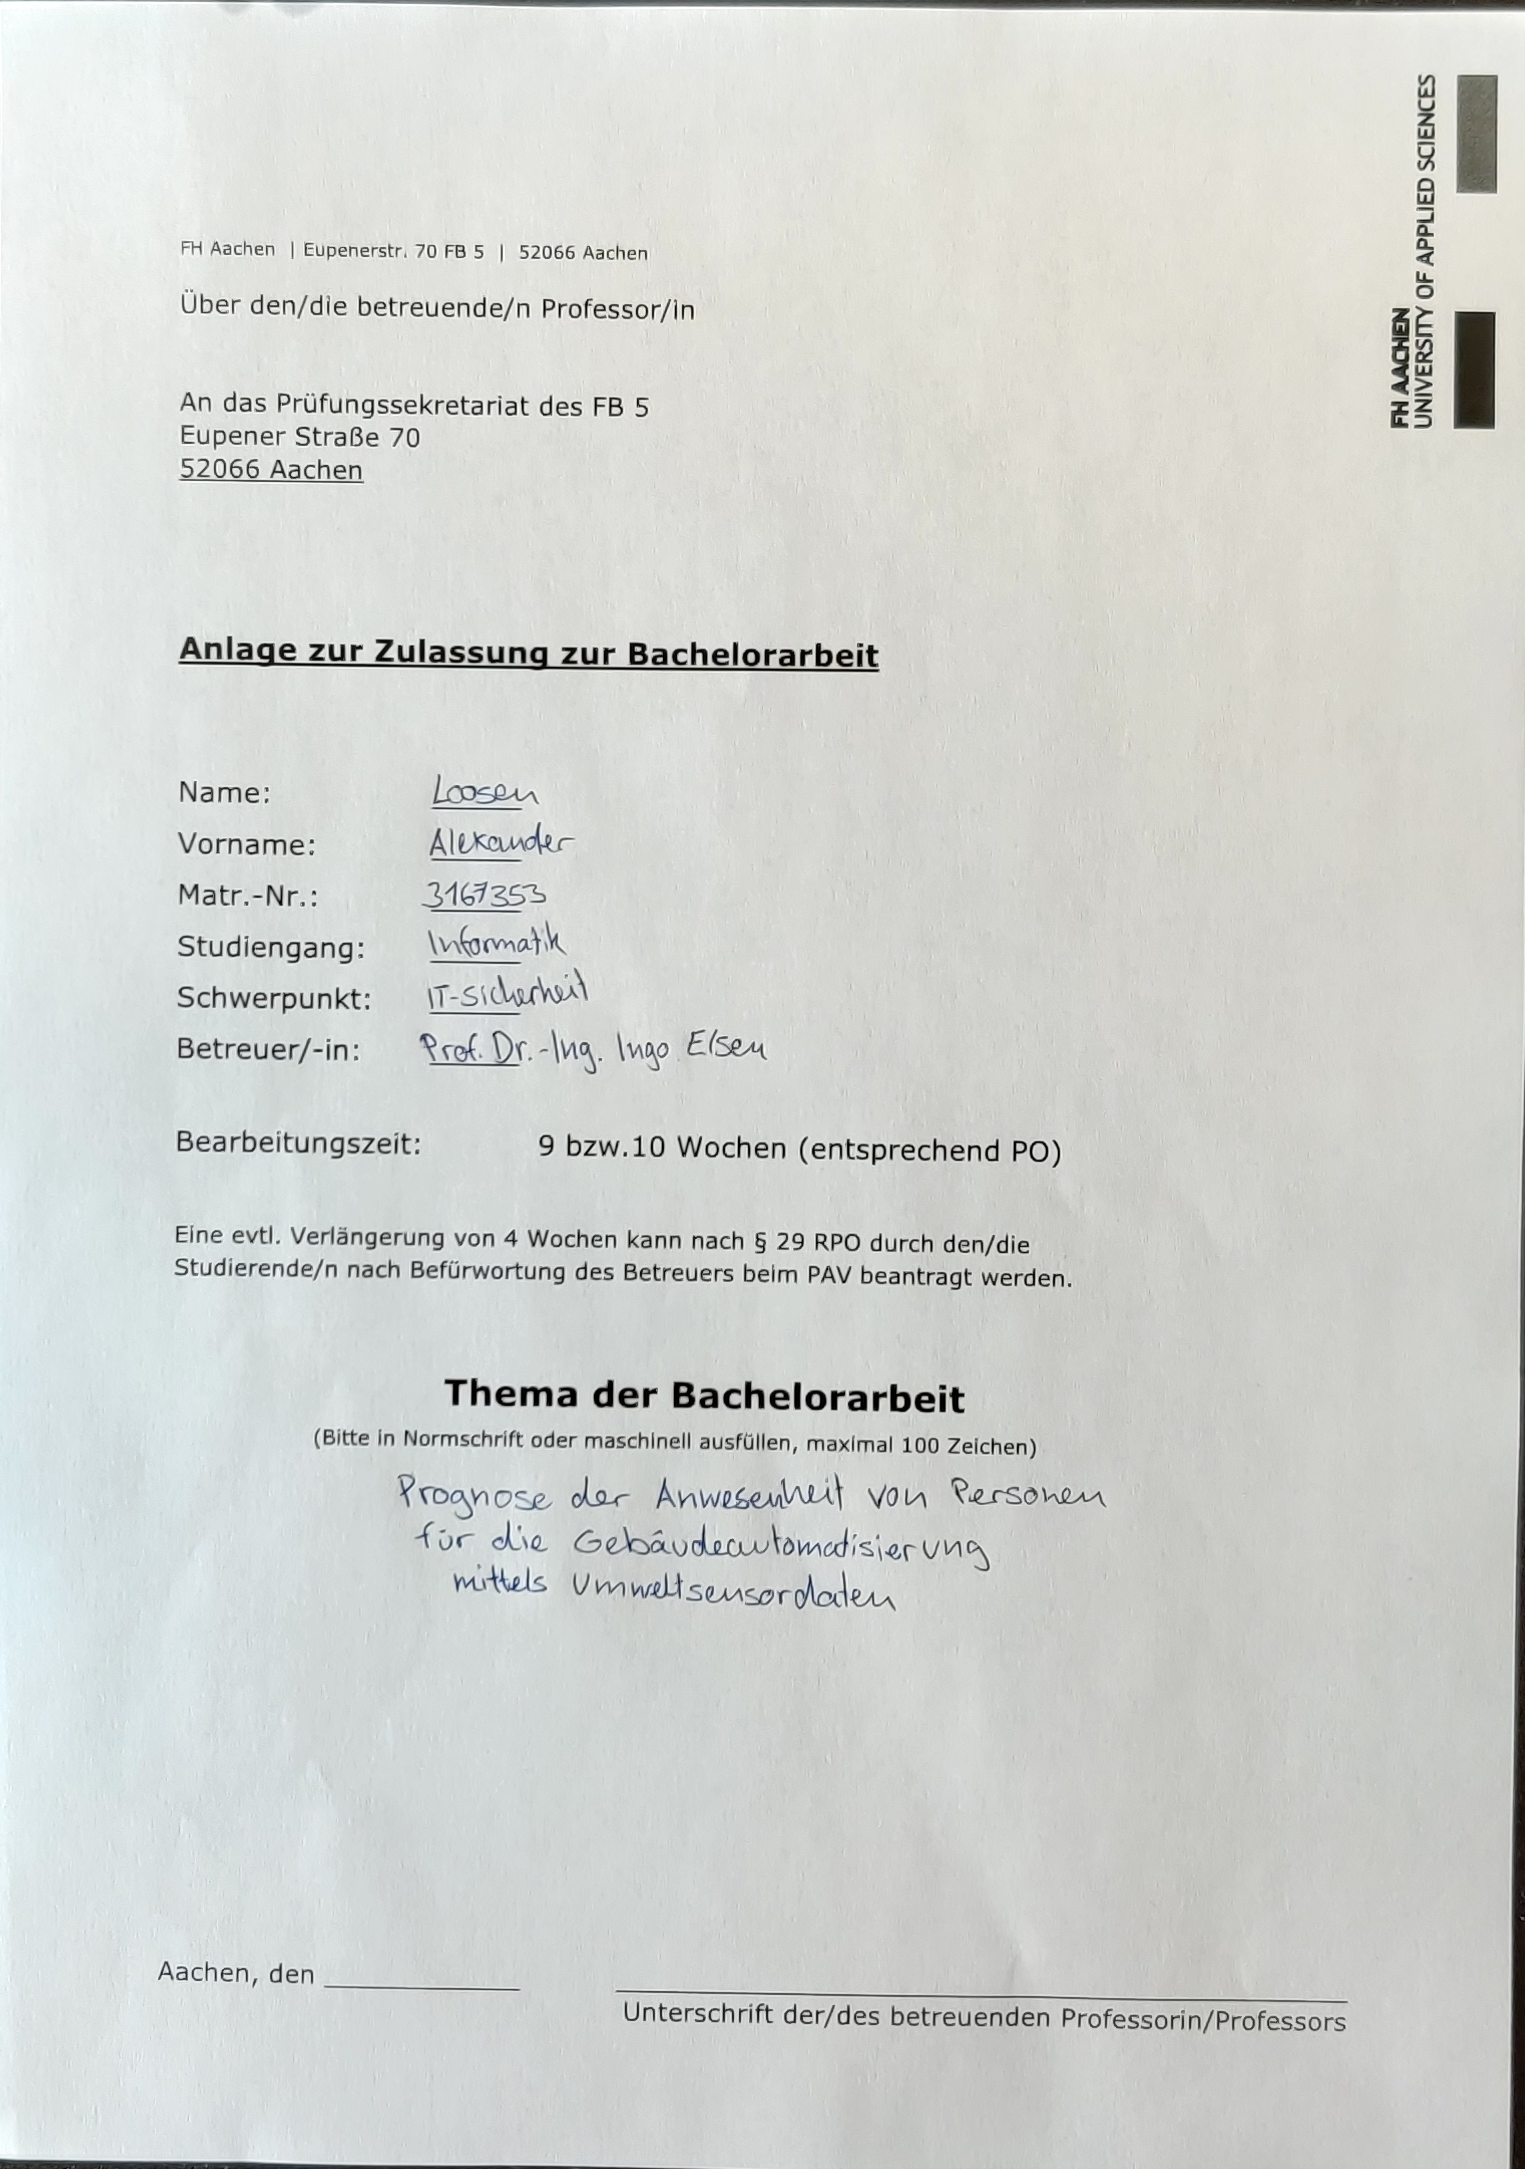 FH AACHEN
UNIVERSITY OF APPLIED SCIENCES
FH Aachen | Eupenerstr. 70 FB 5 | 52066 Aachen
Über den/die betreuende/n Professor/in
An das Prüfungssekretariat des FB 5
Eupener Straße 70
52066 Aachen
Anlage zur Zulassung zur Bachelorarbeit
Name: Loosen
Vorname: Alexander
Matr.-Nr.: 3167353
Studiengang: Informatik
Schwerpunkt: IT-Sicherheit
Betreuer/-in: Prof. Dr.-Ing. Ingo Elsen
Bearbeitungszeit: 9 bzw.10 Wochen (entsprechend PO)
Eine evtl. Verlängerung von 4 Wochen kann nach § 29 RPO durch den/die
Studierende/n nach Befürwortung des Betreuers beim PAV beantragt werden.
Thema der Bachelorarbeit
(Bitte in Normschrift oder maschinell ausfüllen, maximal 100 Zeichen)
Prognose der Anwesenheit von Personen
für die Gebäudeautomatisierung
mittels Umweltsensordaten
Aachen, den
Unterschrift der/des betreuenden Professorin/Professors